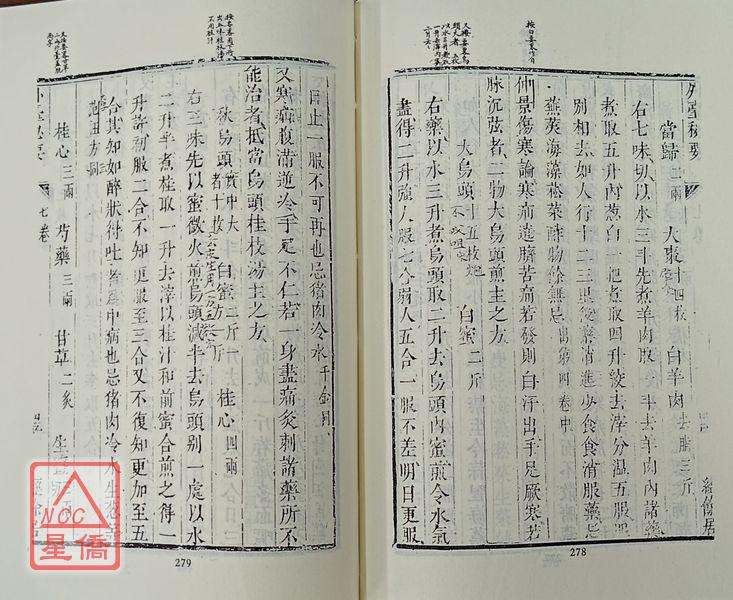 外臺秘要
當歸二兩 大棗十四枚 白羊肉去脂三斤
右七味切以水三斗先煮羊肉取一斗去羊肉內諸藥
煮取五升內蔥白一把煮取四升絞去滓分溫五服服
別相去如人行十二三里後藥消進少食食消服藥忌
蕪荑海藻菘菜酢物餘無忌出第四卷中
仲景傷寒論寒疝遶臍苦痛若發則白汗出手足厥寒若
脉沉弦者二物大烏頭煎主之方
大烏頭十五枚炮不㕮咀 白蜜二斤
右藥以水三升煮烏頭取二升去烏頭內蜜煎令水氣
盡得二升強人服七合弱人五合一服不差明日更服
278
日止一服不可再也忌豬肉冷水千金同
又寒疝腹滿逆冷手足不仁若一身盡痛灸刺諸藥所不
能治者抵當烏頭桂枝湯主之方
秋烏頭實中大者十枚 白蜜二斤 桂心四兩
右三味先以蜜微火煎烏頭減半去烏頭別一處以水
二升半煮桂取一升去滓以桂汁和前蜜合煎之得一
升許初服二合不知更服至三合又不復知更加至五
合其知如醉狀得吐者爲中病也忌豬肉冷水生蔥
范汪方同
桂心三兩 芍藥三兩 甘草二炙
七卷
279
NCC
星僑